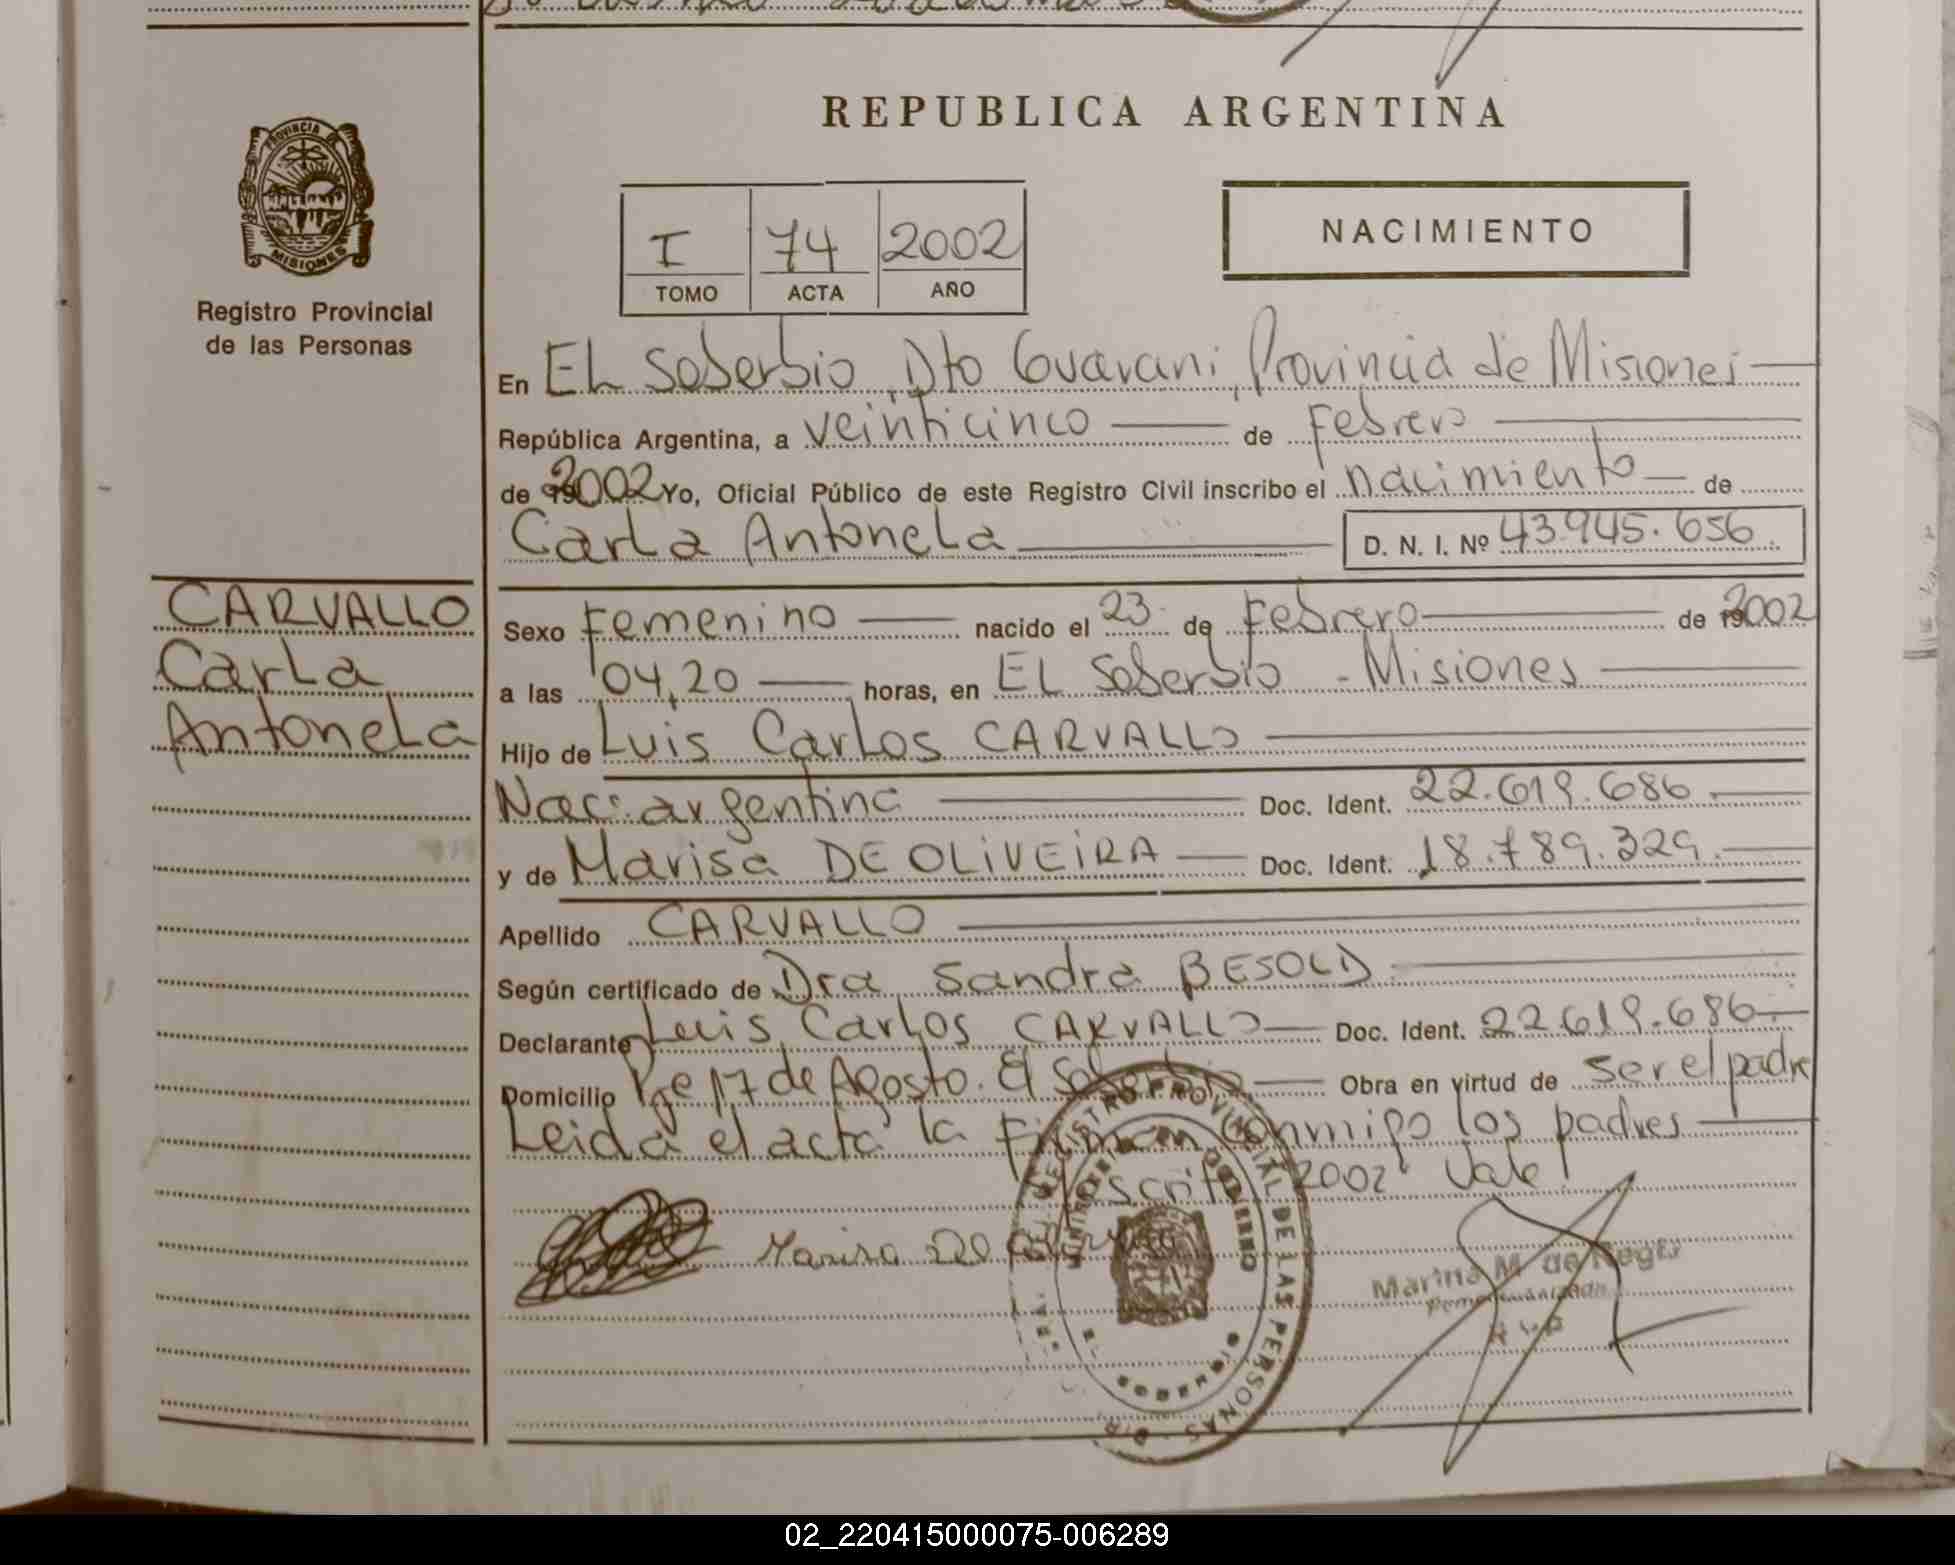 REPUBLICA ARGENTINA
PROVINCIA DE
MISIONES
Registro Provincial
de las Personas
I 74 2002
TOMO ACTA AÑO
NACIMIENTO
En EL Soberbio, Dto Guarani, Provincia de Misiones
República Argentina, a veinticinco de Febrero
de 2002 Yo, Oficial Público de este Registro Civil inscribo el nacimiento de
Carla Antonela D. N. I. Nº 43.945.656.
CARVALLO
Carla
Antonela
Sexo Femenino nacido el 23 de Febrero de 2002
a las 04,20 horas, en EL Soberbio - Misiones
Hijo de Luis Carlos CARVALLO
Nac: argentina Doc. Ident. 22.619.686.
y de Marisa DE OLIVEIRA Doc. Ident. 18.789.329.
Apellido CARVALLO
Según certificado de Dra Sandra BESOLD
Declarante Luis Carlos CARVALLO Doc. Ident. 22.619.686.
Domicilio Pje 17 de Agosto. El Soberbio Obra en virtud de ser el padre
Leida el acta la firman conmigo los padres
escrito 2002 Vale
Marisa De Oliveira
REGISTRO PROVINCIAL DE LAS PERSONAS
GOBIERNO
EL SOBERBIO
Marina M. de
02_220415000075-006289